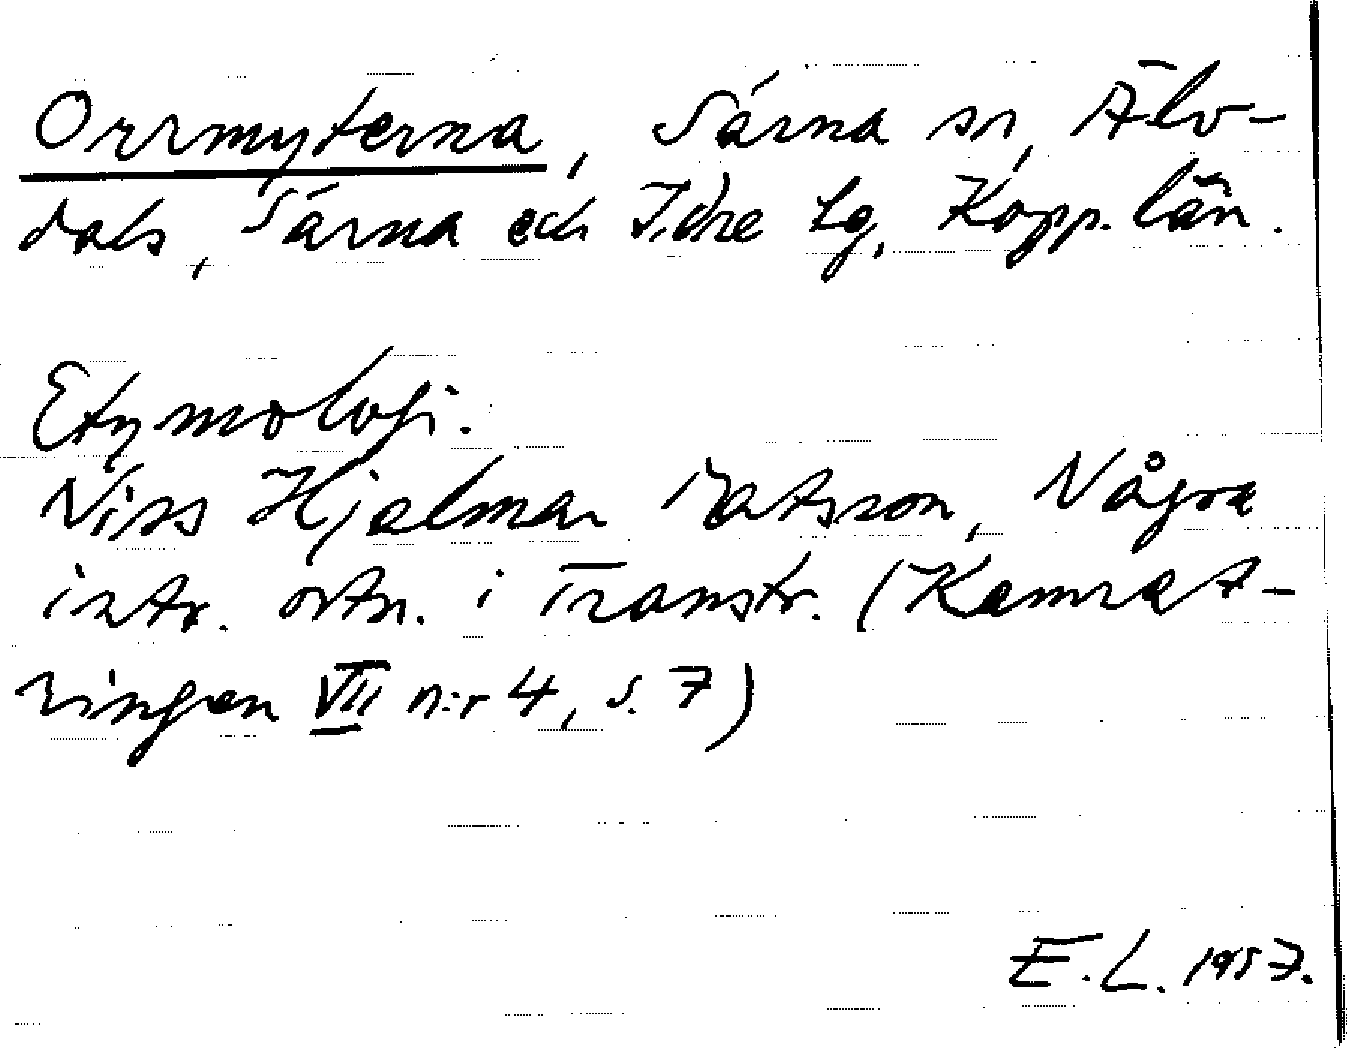 Orrmyterna, Särna sn, Älv-
dals, Särna och Idre tg, Kopp. län.
Etymologi.
Niss Hjalmar Matsson, Några
intr. ortn. i Transtr. (Kamrat-
ringen VII n:r 4, s. 7)
E.L. 1957.